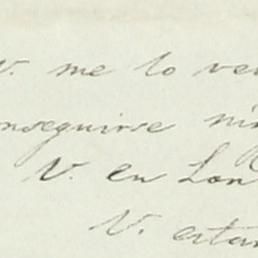 V. me lo ve
nseguirse nin
V. en Lon
V. estar